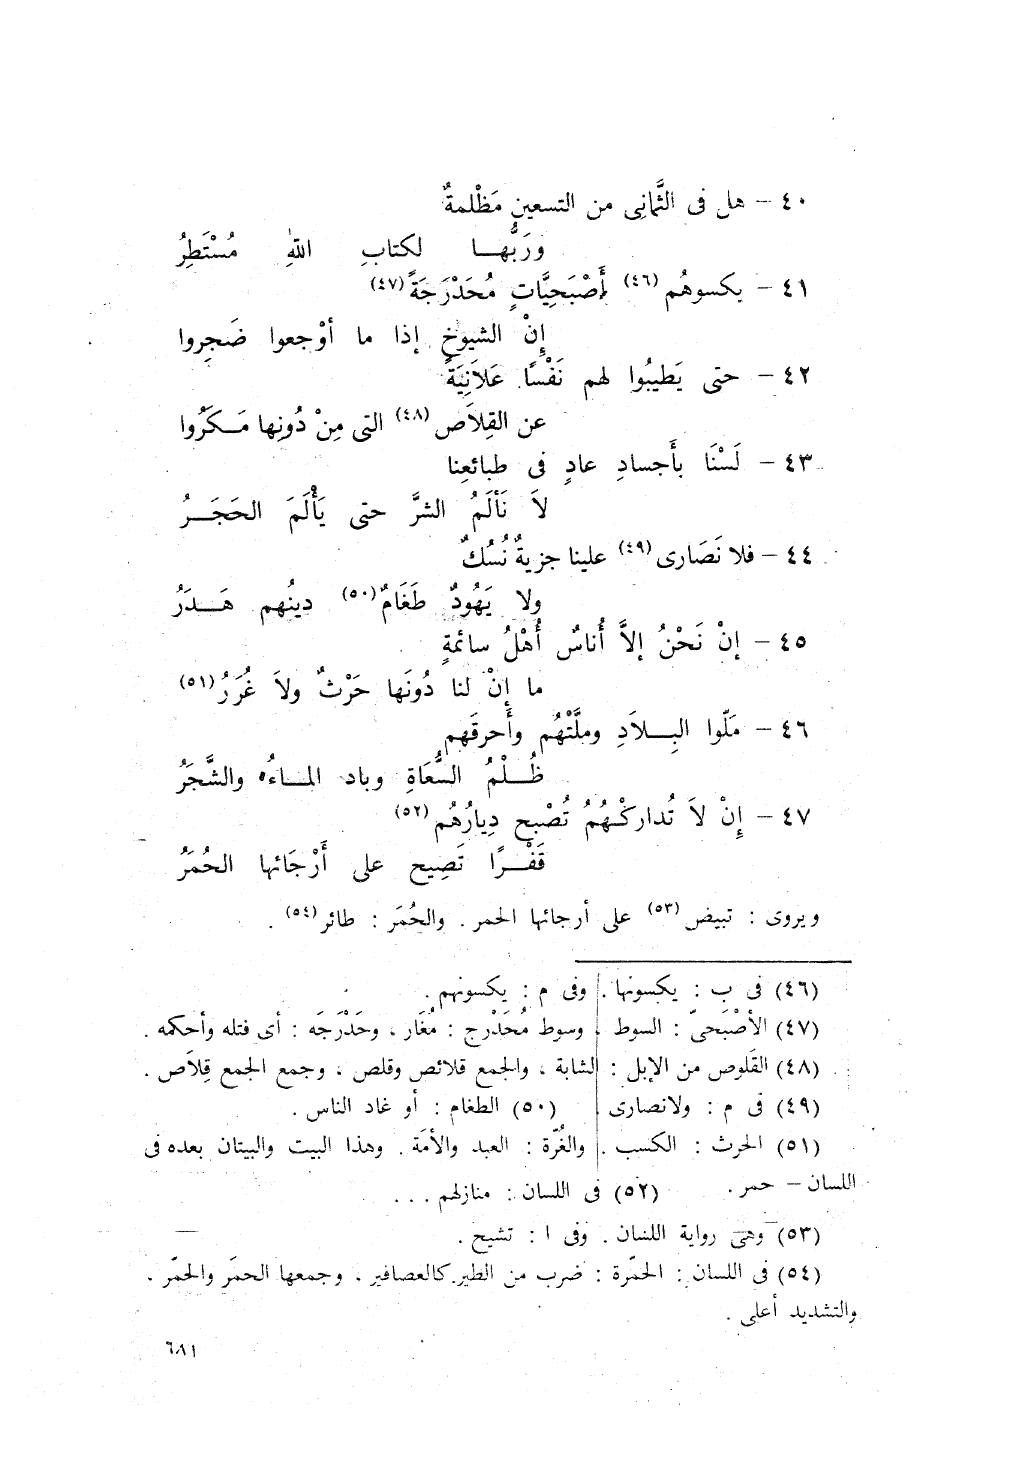 ٤٠ – هل فى الثَّمانِى من التسعين مَظْلمةٌ
ورَبُّهــا لكتابِ اللهِ مُسْتَطِرُ
٤١ – يكسوهُم (٤٦) أَصْبَحِيَّاتٍ مُحَدْرَجَةً (٤٧)
إِنْ الشيوخ إذا ما أوْجعوا ضَجِروا
٤٢ – حتى يَطيبُوا لهم نَفْسًا عَلاَنِيَةً
عن القِلاَص (٤٨) التى مِنْ دُونِها مَـكَرُوا
٤٣ – لَسْنَا بأَجسادِ عادٍ فى طبائعِنا
لاَ نَأْلَمُ الشرَّ حتى يَأْلَمَ الحَجَــرُ
٤٤ – فلا نَصَارى (٤٩) علينا جزيةٌ نُسُكٌ
ولا يَهُودٌ طَغَامٌ (٥٠) دِينُهم هَــدَرُ
٤٥ – إنْ نَحْنُ إلاَّ أُناسٌ أَهْلُ سائمةٍ
ما إنْ لنا دُونَها حَرْثٌ ولاَ غُرَرُ (٥١)
٤٦ – مَلّوا البِـــلاَدِ وملَّتْهُم وأَحرقَهم
ظُــلْمُ السُّعَاةِ وباد المــاءُ والشَّجَرُ
٤٧ – إِنْ لاَ تُداركْـهُمُ تُصْبح دِيارُهُم (٥٢)
قَفْــرًا تَصِيح على أَرْجَائها الحُمَرُ
ويروى : تبيض (٥٣) على أرجائها الحمر . والحُمَر : طائر (٥٤) .
(٤٦) فى ب : يكسونها . وفى م : يكسونهم .
(٤٧) الأصْبَحىّ : السوط ، وسوط مُحَدْرج : مُغَار ، وحَدْرَجَه : أى فتله وأحكمه .
(٤٨) القَلوص من الإبل : الشابة ، والجمع قلائص وقلص ، وجمع الجمع قِلاَص .
(٤٩) فى م : ولانصارى . (٥٠) الطغام : أو غاد الناس .
(٥١) الحرث : الكسب . والغُرّة : العبد والأمَة . وهذا البيت والبيتان بعده فى
اللسان – حمر . (٥٢) فى اللسان : منازلهم . . .
(٥٣) وهى رواية اللسان . وفى ا : تشيح .
(٥٤) فى اللسان : الحمّرة : ضرب من الطير كالعصافير . وجمعها الحمَر والحمّر .
والتشديد أعلى .
٦٨١